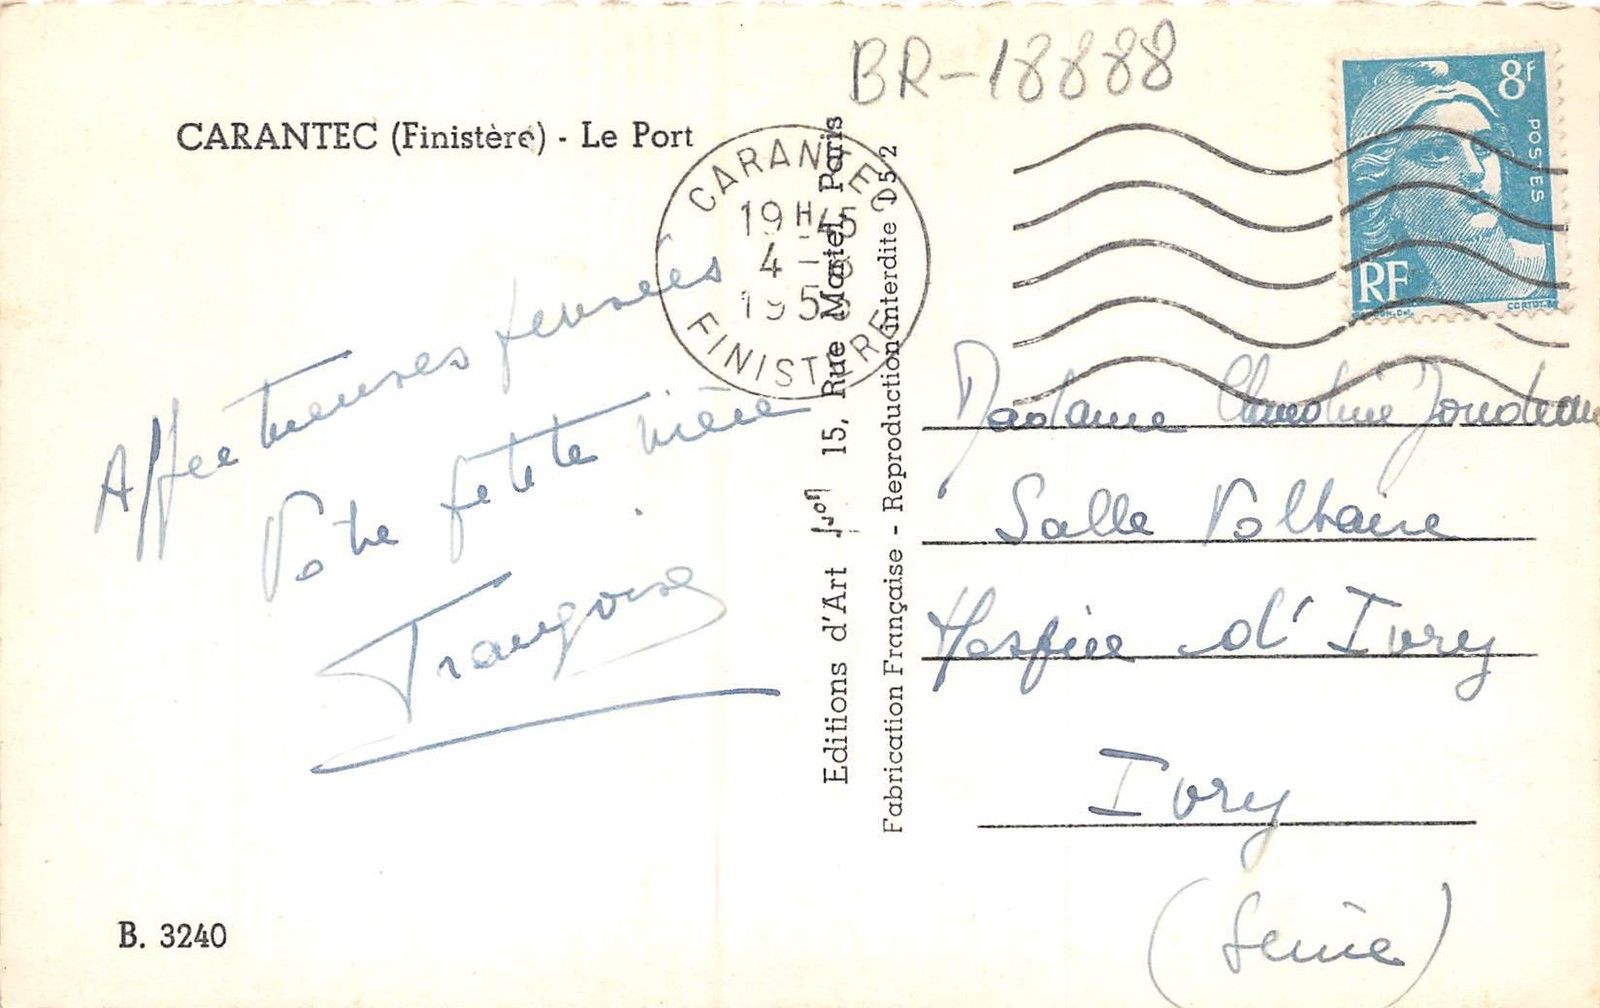 BR-18888
CARANTEC (Finistère) - Le Port
CARANTEC
19 H 45
4 - 8
195
FINISTERE
8f
POSTES
RF
Affectueuses pensées
Votre petite nièce
Françoise
Editions d'Art 15, Rue Martel, Paris
Fabrication Française - Reproduction interdite D52
Madame
Salle Voltaire
Hospice d'Ivry
Ivry
(Seine)
B. 3240